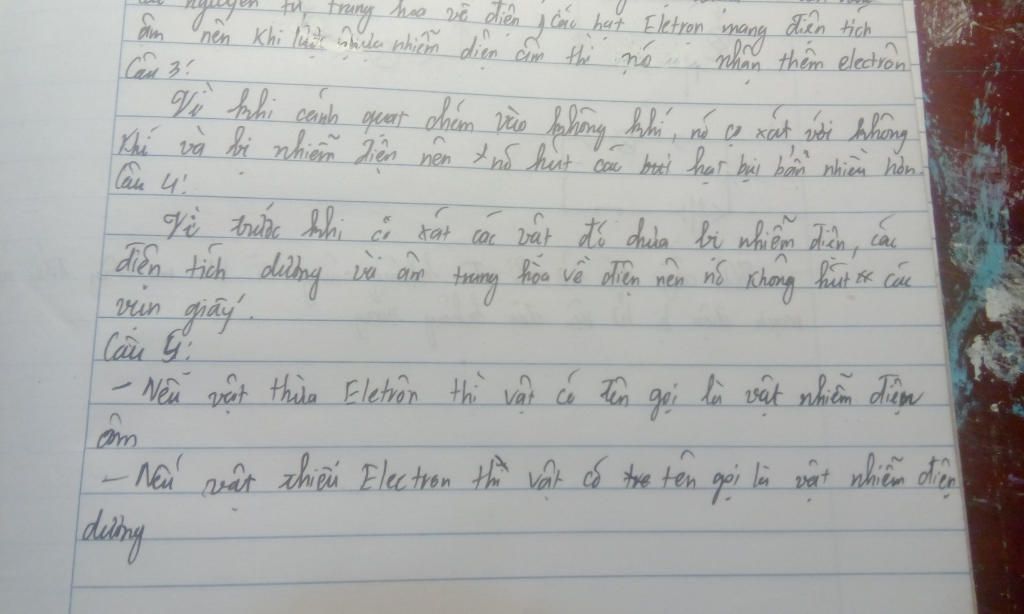 nguyên tử trung hoa về điện, các hạt Eletron mang điện tích
âm nên khi lược nhựa nhiễm điện âm thì nó nhận thêm electron
Câu 3:
Vì khi cánh quạt chém vào không khí, nó cọ xát với không
khí và bị nhiễm điện nên nó hút các hạt bụi bẩn nhiều hơn.
Câu 4:
Vì trước khi cọ xát các vật đó chưa bị nhiễm điện, các
điện tích dương và âm trung hòa về điện nên nó không hút các
vụn giấy.
Câu 5:
- Nếu vật thừa Eletrôn thì vật có tên gọi là vật nhiễm điện
âm
- Nếu vật thiếu Electron thì vật có tên gọi là vật nhiễm điện
dương